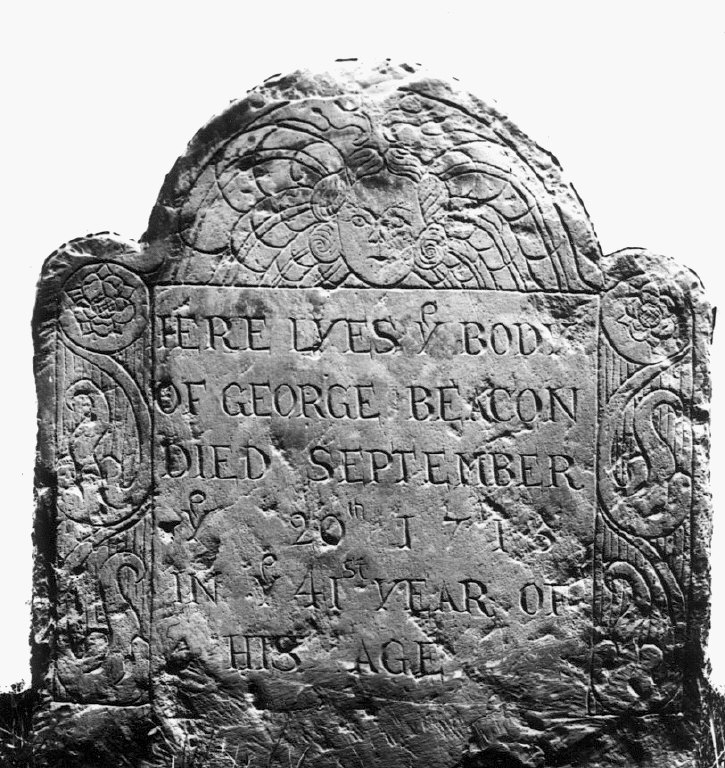 HERE LYES yͤ BODY
OF GEORGE BEACON
DIED SEPTEMBER
yͤ 20th
IN yͤ 41st YEAR OF
HIS AGE